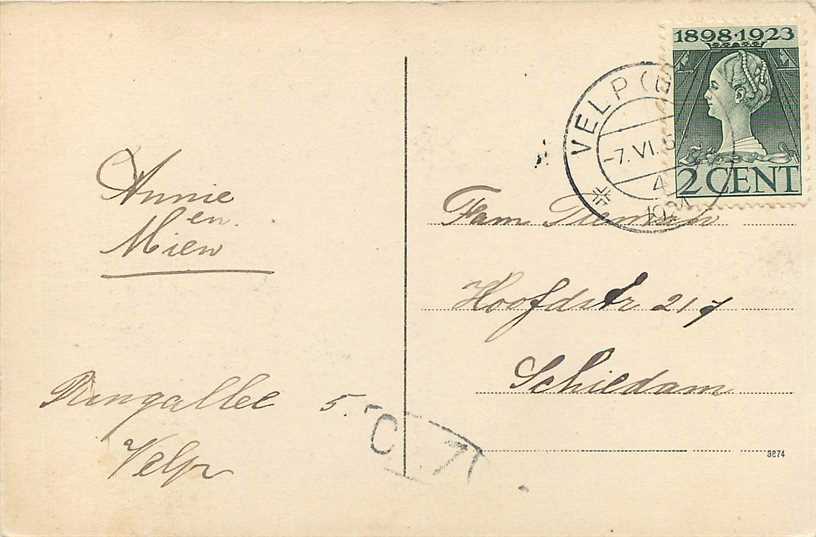 Annie
en
Mien
Ringallee 5.
Velp
1898·1923
2 CENT
VELP
-7.VI.
4
Fam
Hoofdstr 217
Schiedam
3874